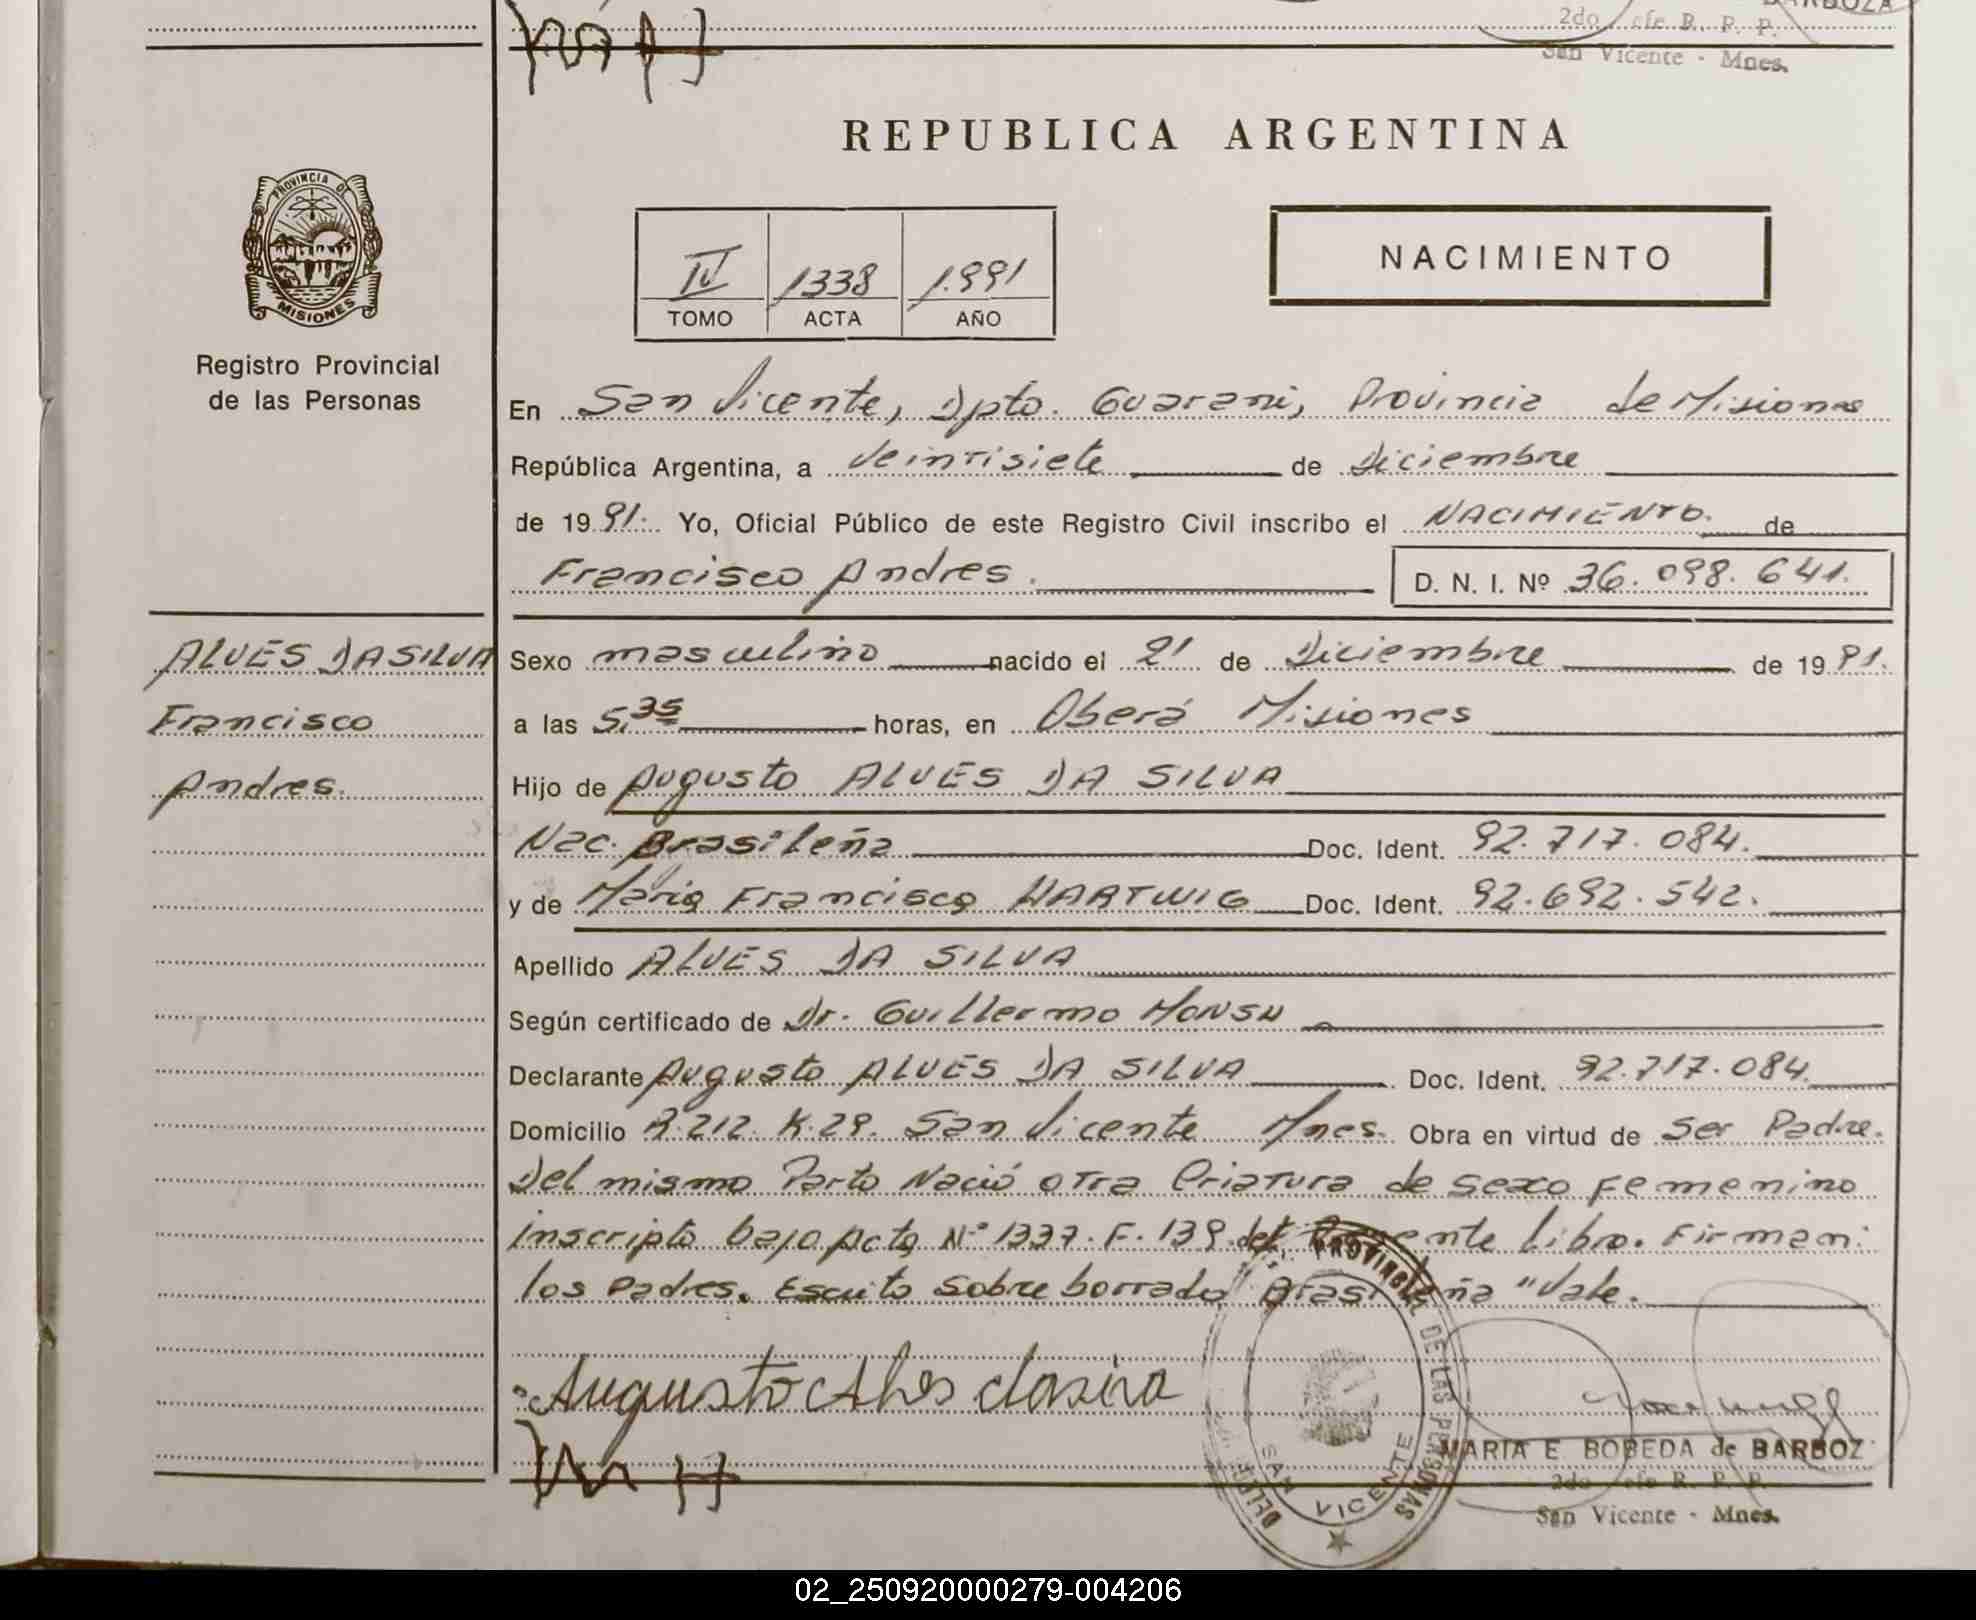 BARBOZA
2do Jefe R. P. P.
San Vicente - Mnes.
REPUBLICA ARGENTINA
PROVINCIA DE
MISIONES
Registro Provincial
de las Personas
IV 1338 1.991
TOMO ACTA AÑO
NACIMIENTO
En San Vicente, Dpto. Guarani, Provincia de Misiones
República Argentina, a Veintisiete de Diciembre
de 19 91. Yo, Oficial Público de este Registro Civil inscribo el NACIMIENTO. de
Francisco Andres. D. N. I. Nº 36.098.641.
ALVES DA SILVA
Francisco
Andres.
Sexo masculino nacido el 21 de Diciembre de 19 91.
a las 5,35 horas, en Oberá Misiones
Hijo de Augusto ALVES DA SILVA
Nac. Brasileña Doc. Ident. 92.717.084.
y de Maria Francisca HARTWIG Doc. Ident. 92.692.542.
Apellido ALVES DA SILVA
Según certificado de Dr. Guillermo
Declarante Augusto ALVES DA SILVA Doc. Ident. 92.717.084.
Domicilio R.212. K.29. San Vicente Mnes. Obra en virtud de Ser Padre.
Del mismo Parto Nació otra Criatura de sexo Femenino
inscripto bajo Acta Nº 1337. F. 139. del Presente libro. Firman:
los Padres. Escrito sobre borrado "Brasileña" Vale.
Augusto Alves dasilva
PROVINCIAL DE LAS PERSONAS
SAN VICENTE
MARIA E BOBEDA de BARBOZ
2do Jefe R. P. P.
San Vicente - Mnes.
02_250920000279-004206